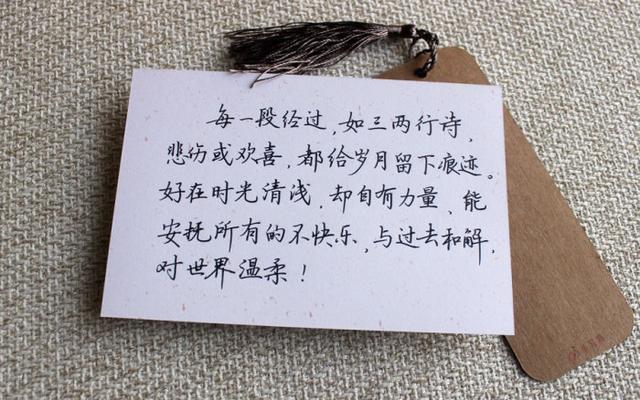 每一段经过,如三两行诗,
悲伤或欢喜,都给岁月留下痕迹。
好在时光清浅,却自有力量,能
安抚所有的不快乐,与过去和解,
对世界温柔!